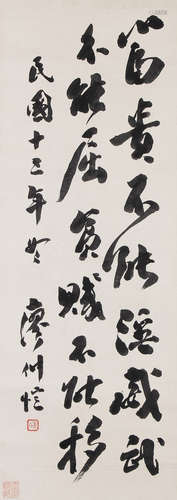 富貴不能淫威武
不能屈貧賤不能移
民國十三年冬 廖仲愷